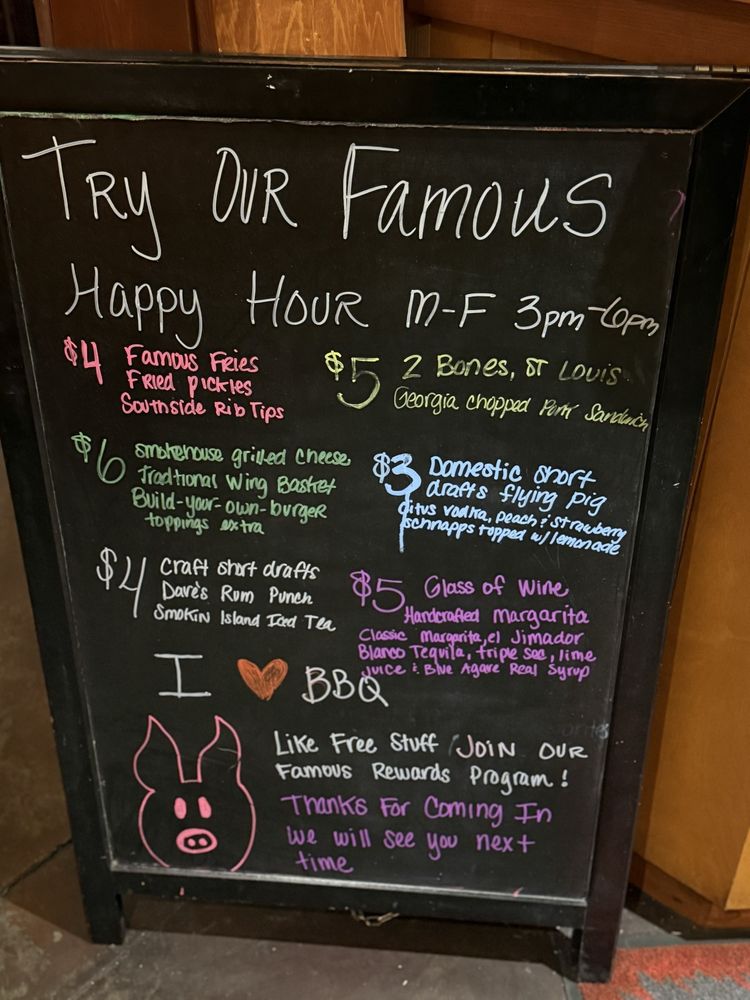 Try Our Famous
Happy Hour M-F 3pm-6pm
$4 Famous Fries
Fried pickles
Southside Rib Tips
$5 2 Bones, ST Louis
Georgia chopped Pork Sandwich
$6 smokehouse grilled cheese
Traditional Wing Basket
Build-your-own-burger
toppings extra
$3 Domestic short
drafts flying pig
citus vodka, peach & strawberry
schnapps topped w/ lemonade
$4 craft short drafts
Dave's Rum Punch
Smokin Island Iced Tea
$5 Glass of Wine
Handcrafted margarita
Classic margarita, el Jimador
Blanco Tequila, triple sec, lime
juice & Blue Agave Real Syrup
I ❤ BBQ
Like Free Stuff Join our
Famous Rewards Program!
Thanks For Coming In
We will see you next
time